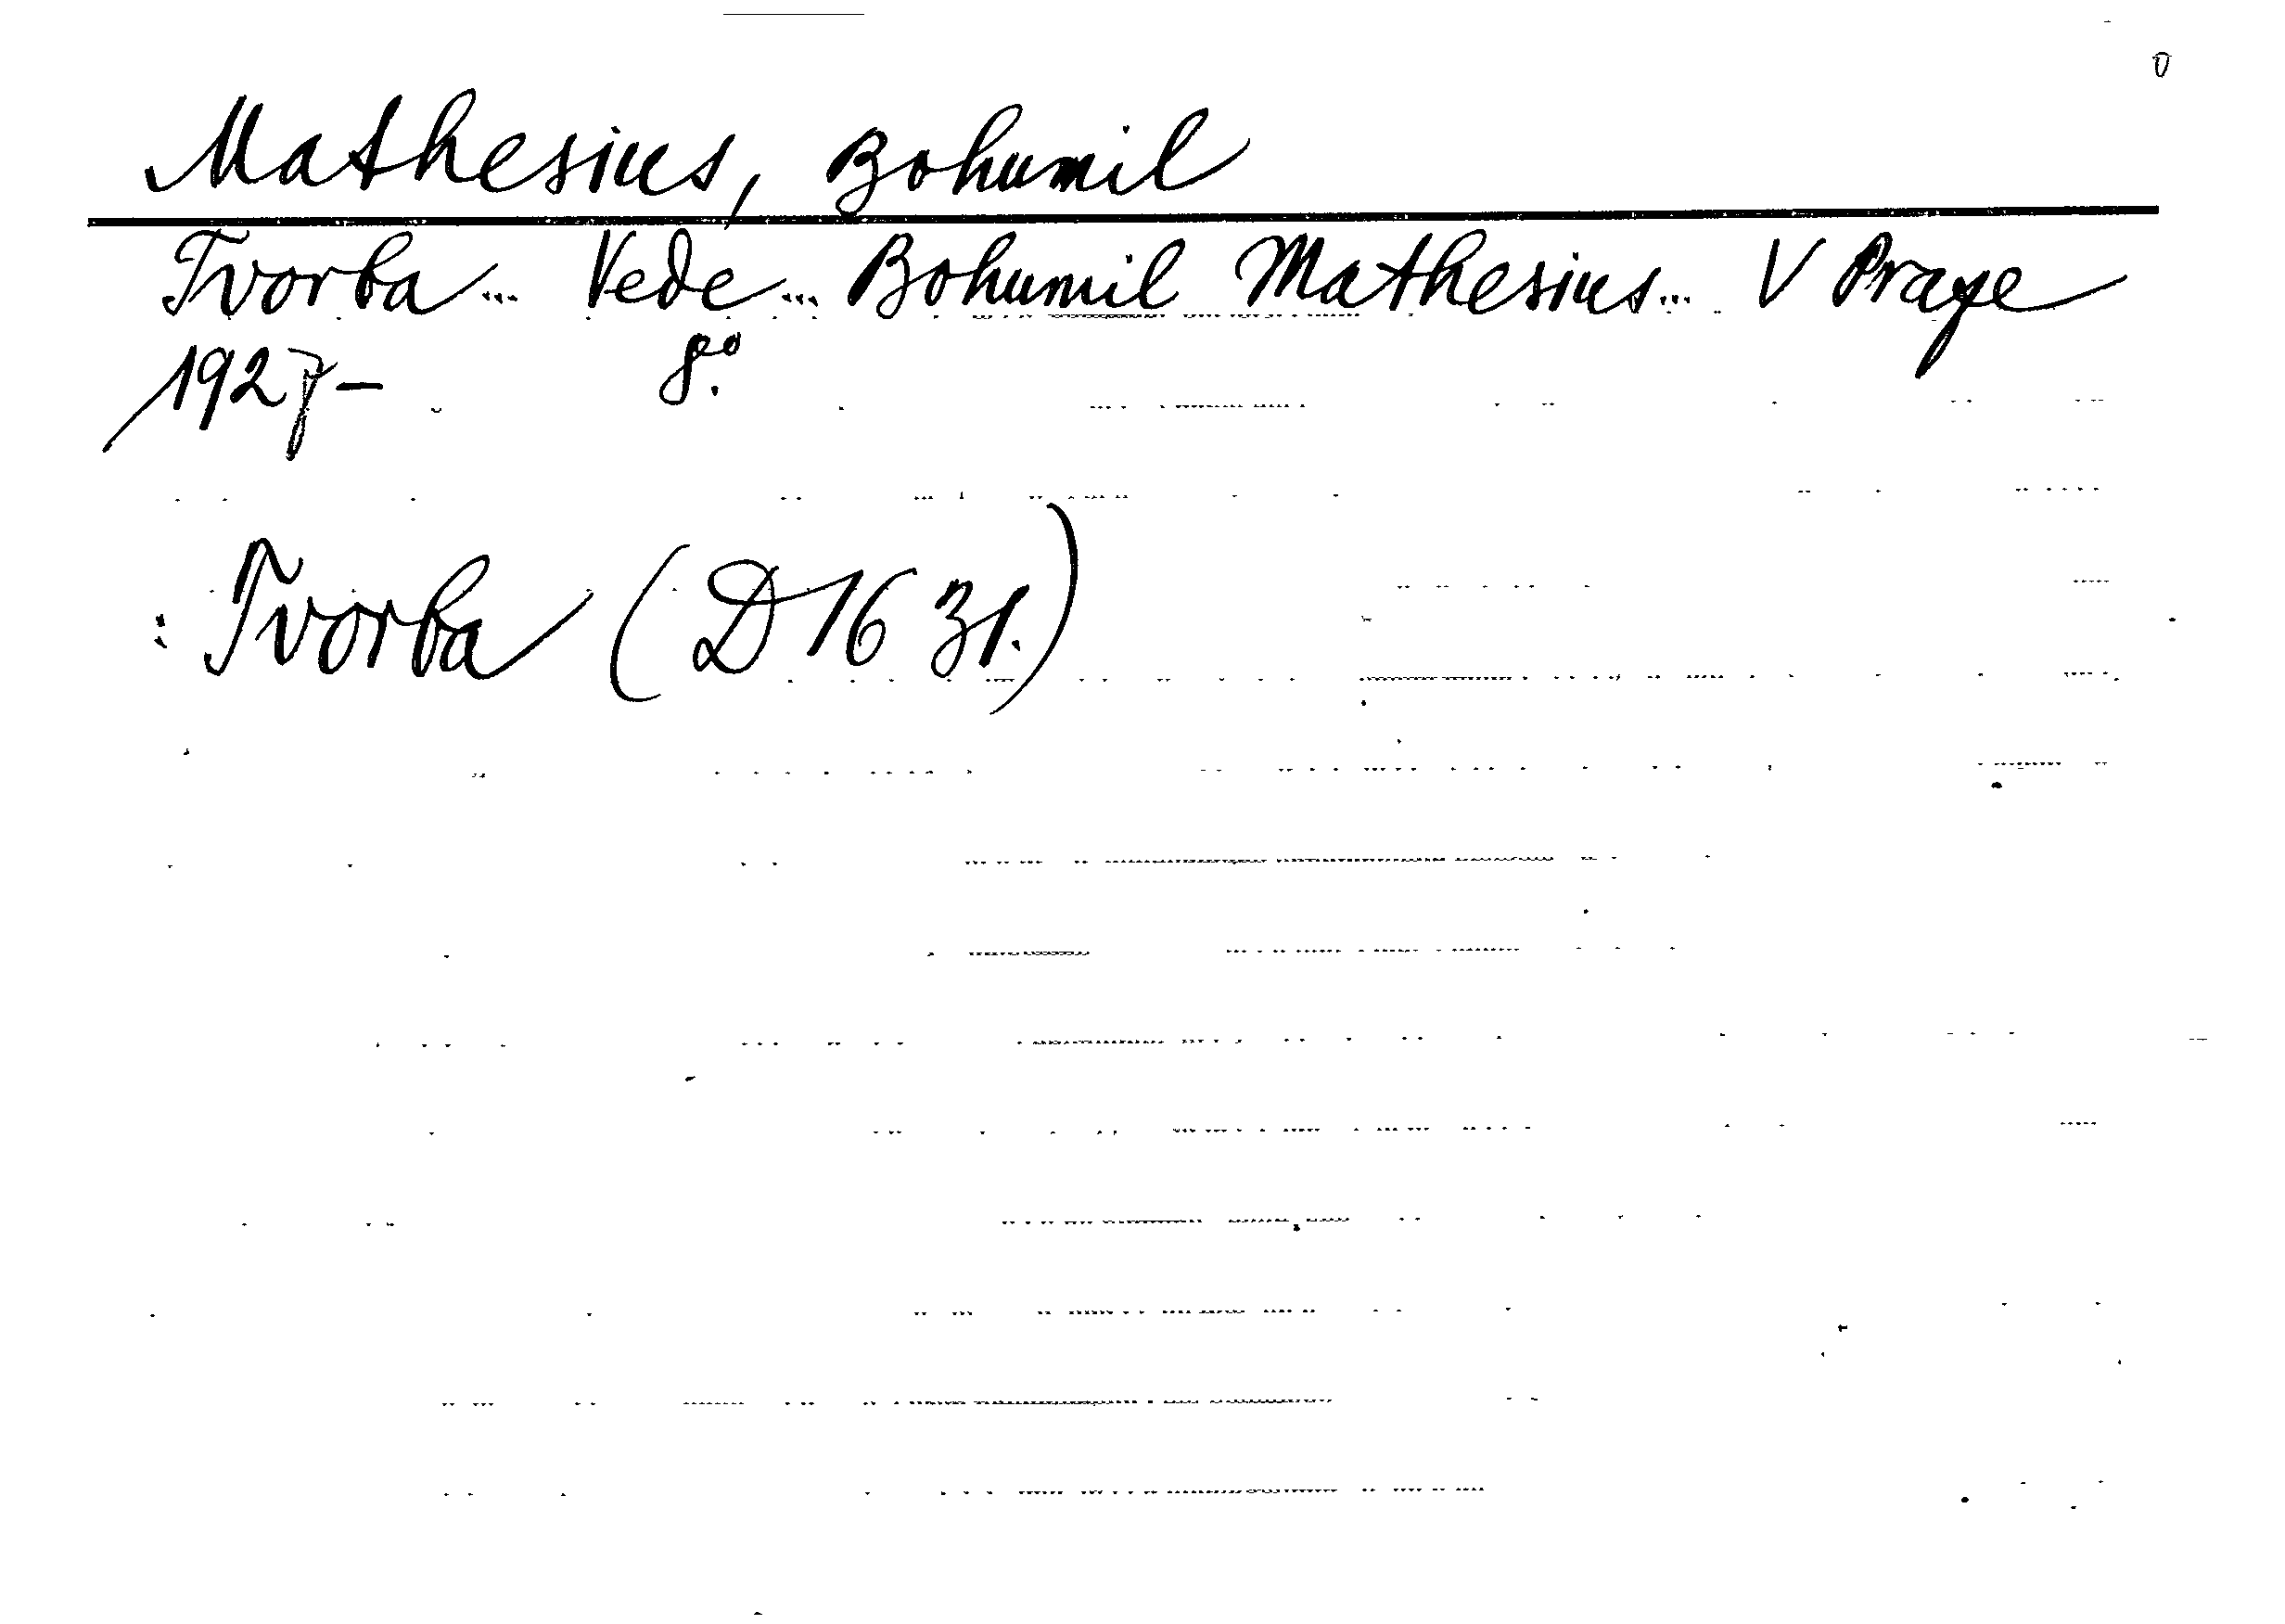 Mathesius, Bohumil
Tvorba... Vede... Bohumil Mathesius... V Praze
1927- 8°.
: Tvorba (D 16 31.)